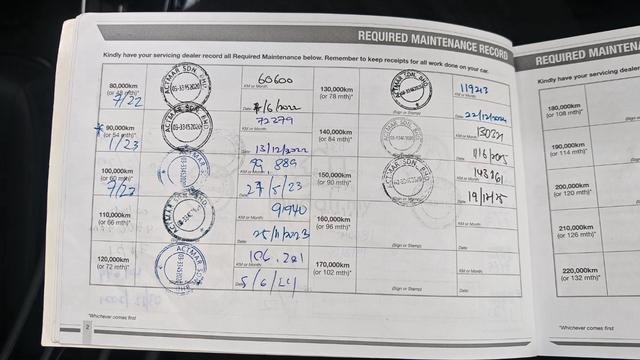 REQUIRED MAINTENANCE RECORD
Kindly have your servicing dealer record all Required Maintenance below. Remember to keep receipts for all work done on your car.
80,000km
(or 48 mth)*
7/22
ACTMAR SDN BHD
03-33452020
60600
KM or Month:
Date:
/6/2022
*90,000km
(or 54 mth)*
1/23
ACTMAR SDN BHD
03-33452020
72279
KM or Month:
Date:
13/12/2022
100,000km
(or 60 mth)*
ACTMAR SDN BHD
889
KM or Month:
Date:
27/5/23
110,000km
(or 66 mth)*
ACTMAR SDN BHD
91940
KM or Month:
Date:
25/11/2023
120,000km
(or 72 mth)*
ACTMAR SDN BHD
106,281
KM or Month:
Date:
5/6/24
130,000km
(or 78 mth)*
ACTMAR SDN BHD
(Sign or Stamp)
119213
KM or Month:
Date:
22/12/2024
140,000km
(or 84 mth)*
(Sign or Stamp)
KM or Month:
Date:
150,000km
(or 90 mth)*
ACTMAR SDN BHD
KM or Month:
Date:
19/12/25
160,000km
(or 96 mth)*
(Sign or Stamp)
KM or Month:
Date:
170,000km
(or 102 mth)*
(Sign or Stamp)
KM or Month:
Date:
*Whichever comes first
2
REQUIRED MAINTENA
Kindly have your servicing dealer
180,000km
(or 108 mth)*
190,000km
(or 114 mth)*
200,000km
(or 120 mth)*
210,000km
(or 126 mth)*
220,000km
(or 132 mth)*
*Whichever comes first